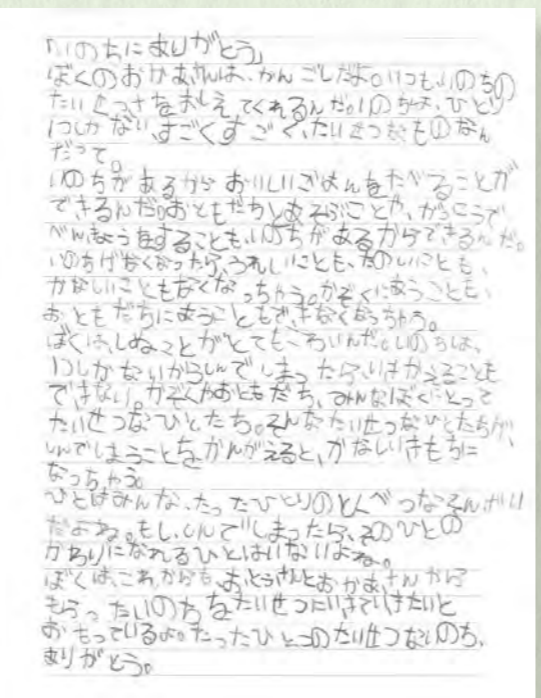 「いのちにありがとう」
ぼくのおかあさんは、かんごしだよ。いつも、いのちの
たいせつさをおしえてくれるんだ。いのちは、ひとり
1つしかない、すごくすごく、たいせつなものなん
だって。
いのちがあるからおいしいごはんをたべることが
できるんだ。おともだちとあそぶことや、がっこうで
べんきょうをすることも、いのちがあるからできるんだ。
いのちがなくなったら、うれしいことも、たのしいことも、
かなしいこともなくなっちゃう。かぞくにあうことも、
おともだちにあうこともできなくなっちゃう。
ぼくは、しぬことがとてもこわいんだ。いのちは、
1つしかないからしんでしまったら、いきかえることも
できない。かぞくやおともだち、みんなぼくにとって
たいせつなひとたち。そんなたいせつなひとたちが、
しんでしまうことをかんがえると、かなしいきもちに
なっちゃう。
ひとはみんな、たったひとりのとくべつなそんざい
だよね。もし、しんでしまったら、そのひとの
かわりになれるひとはいないよね。
ぼくは、これからも、おとうさんとおかあさんから
もらったいのちをたいせつにいきていきたいと
おもっているよ。たったひとつのたいせつないのち、
ありがとう。